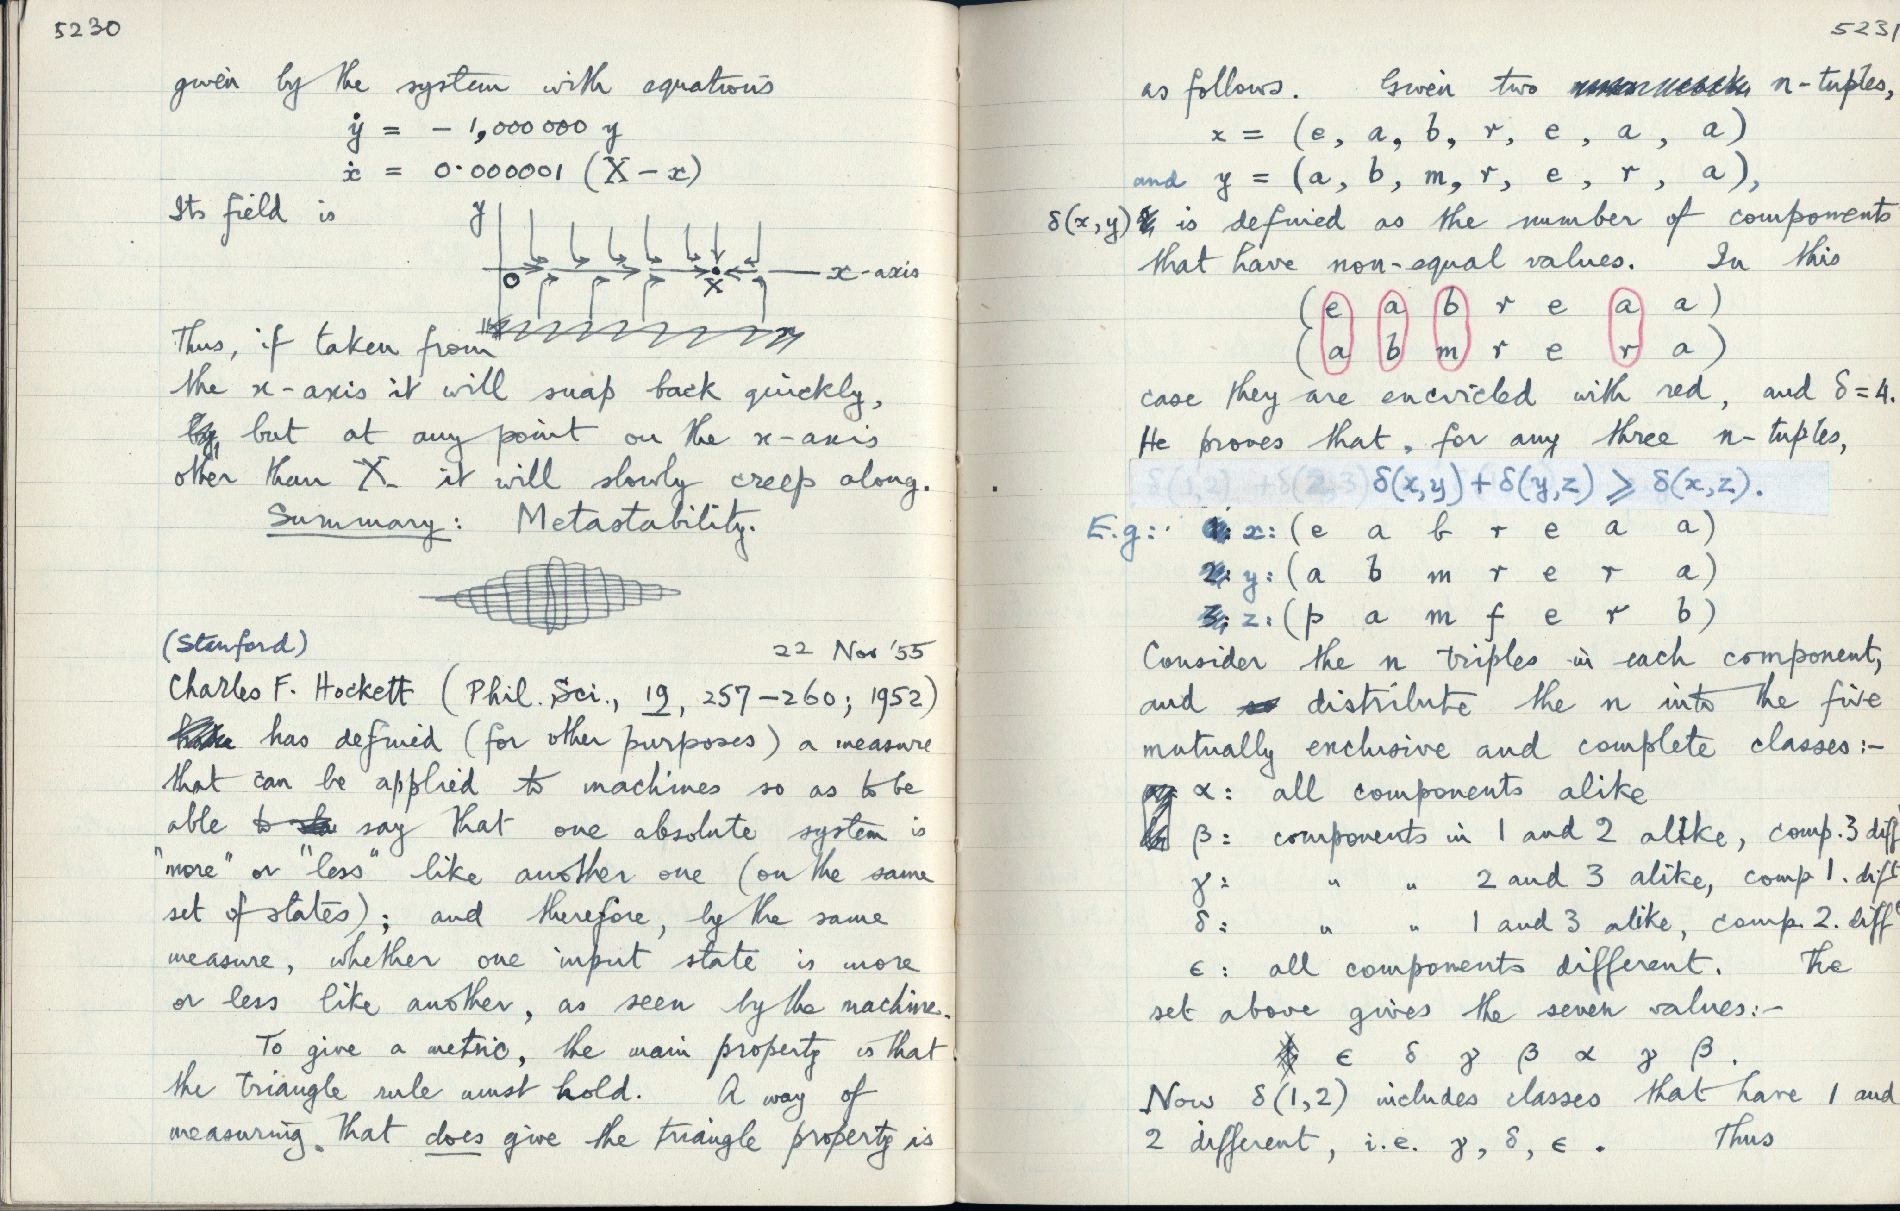 5230
given by the system with equations
ẏ = - 1,000 000 y
ẋ = 0·000001 (X - x)
Its field is
y
O
X
x-axis
Thus, if taken from
the x-axis it will snap back quickly,
but at any point on the x-axis
other than X it will slowly creep along.
Summary: Metastability.
(Stanford) 22 Nov '55
Charles F. Hockett (Phil. Sci., 19, 257-260; 1952)
has defined (for other purposes) a measure
that can be applied to machines so as to be
able to say that one absolute system is
"more" or "less" like another one (on the same
set of states); and therefore, by the same
measure, whether one input state is more
or less like another, as seen by the machine.
To give a metric, the main property is that
the triangle rule must hold. A way of
measuring that does give the triangle property is
5231
as follows. Given two n-tuples,
x = (e, a, b, r, e, a, a)
and y = (a, b, m, r, e, r, a),
δ(x,y) is defined as the number of components
that have non-equal values. In this
(e a b r e a a)
(a b m r e r a)
case they are encircled with red, and δ = 4.
He proves that, for any three n-tuples,
δ(x,y) + δ(y,z) ⩾ δ(x,z).
E.g: x: (e a b r e a a)
y: (a b m r e r a)
z: (p a m f e r b)
Consider the n triples in each component,
and distribute the n into the five
mutually exclusive and complete classes:-
α: all components alike
β: components in 1 and 2 alike, comp. 3 diff
γ: " " 2 and 3 alike, comp 1. diff
δ: " " 1 and 3 alike, comp. 2. diff
ϵ: all components different. The
set above gives the seven values:-
ϵ δ γ β α γ β.
Now δ(1,2) includes classes that have 1 and
2 different, i.e. γ, δ, ϵ. Thus